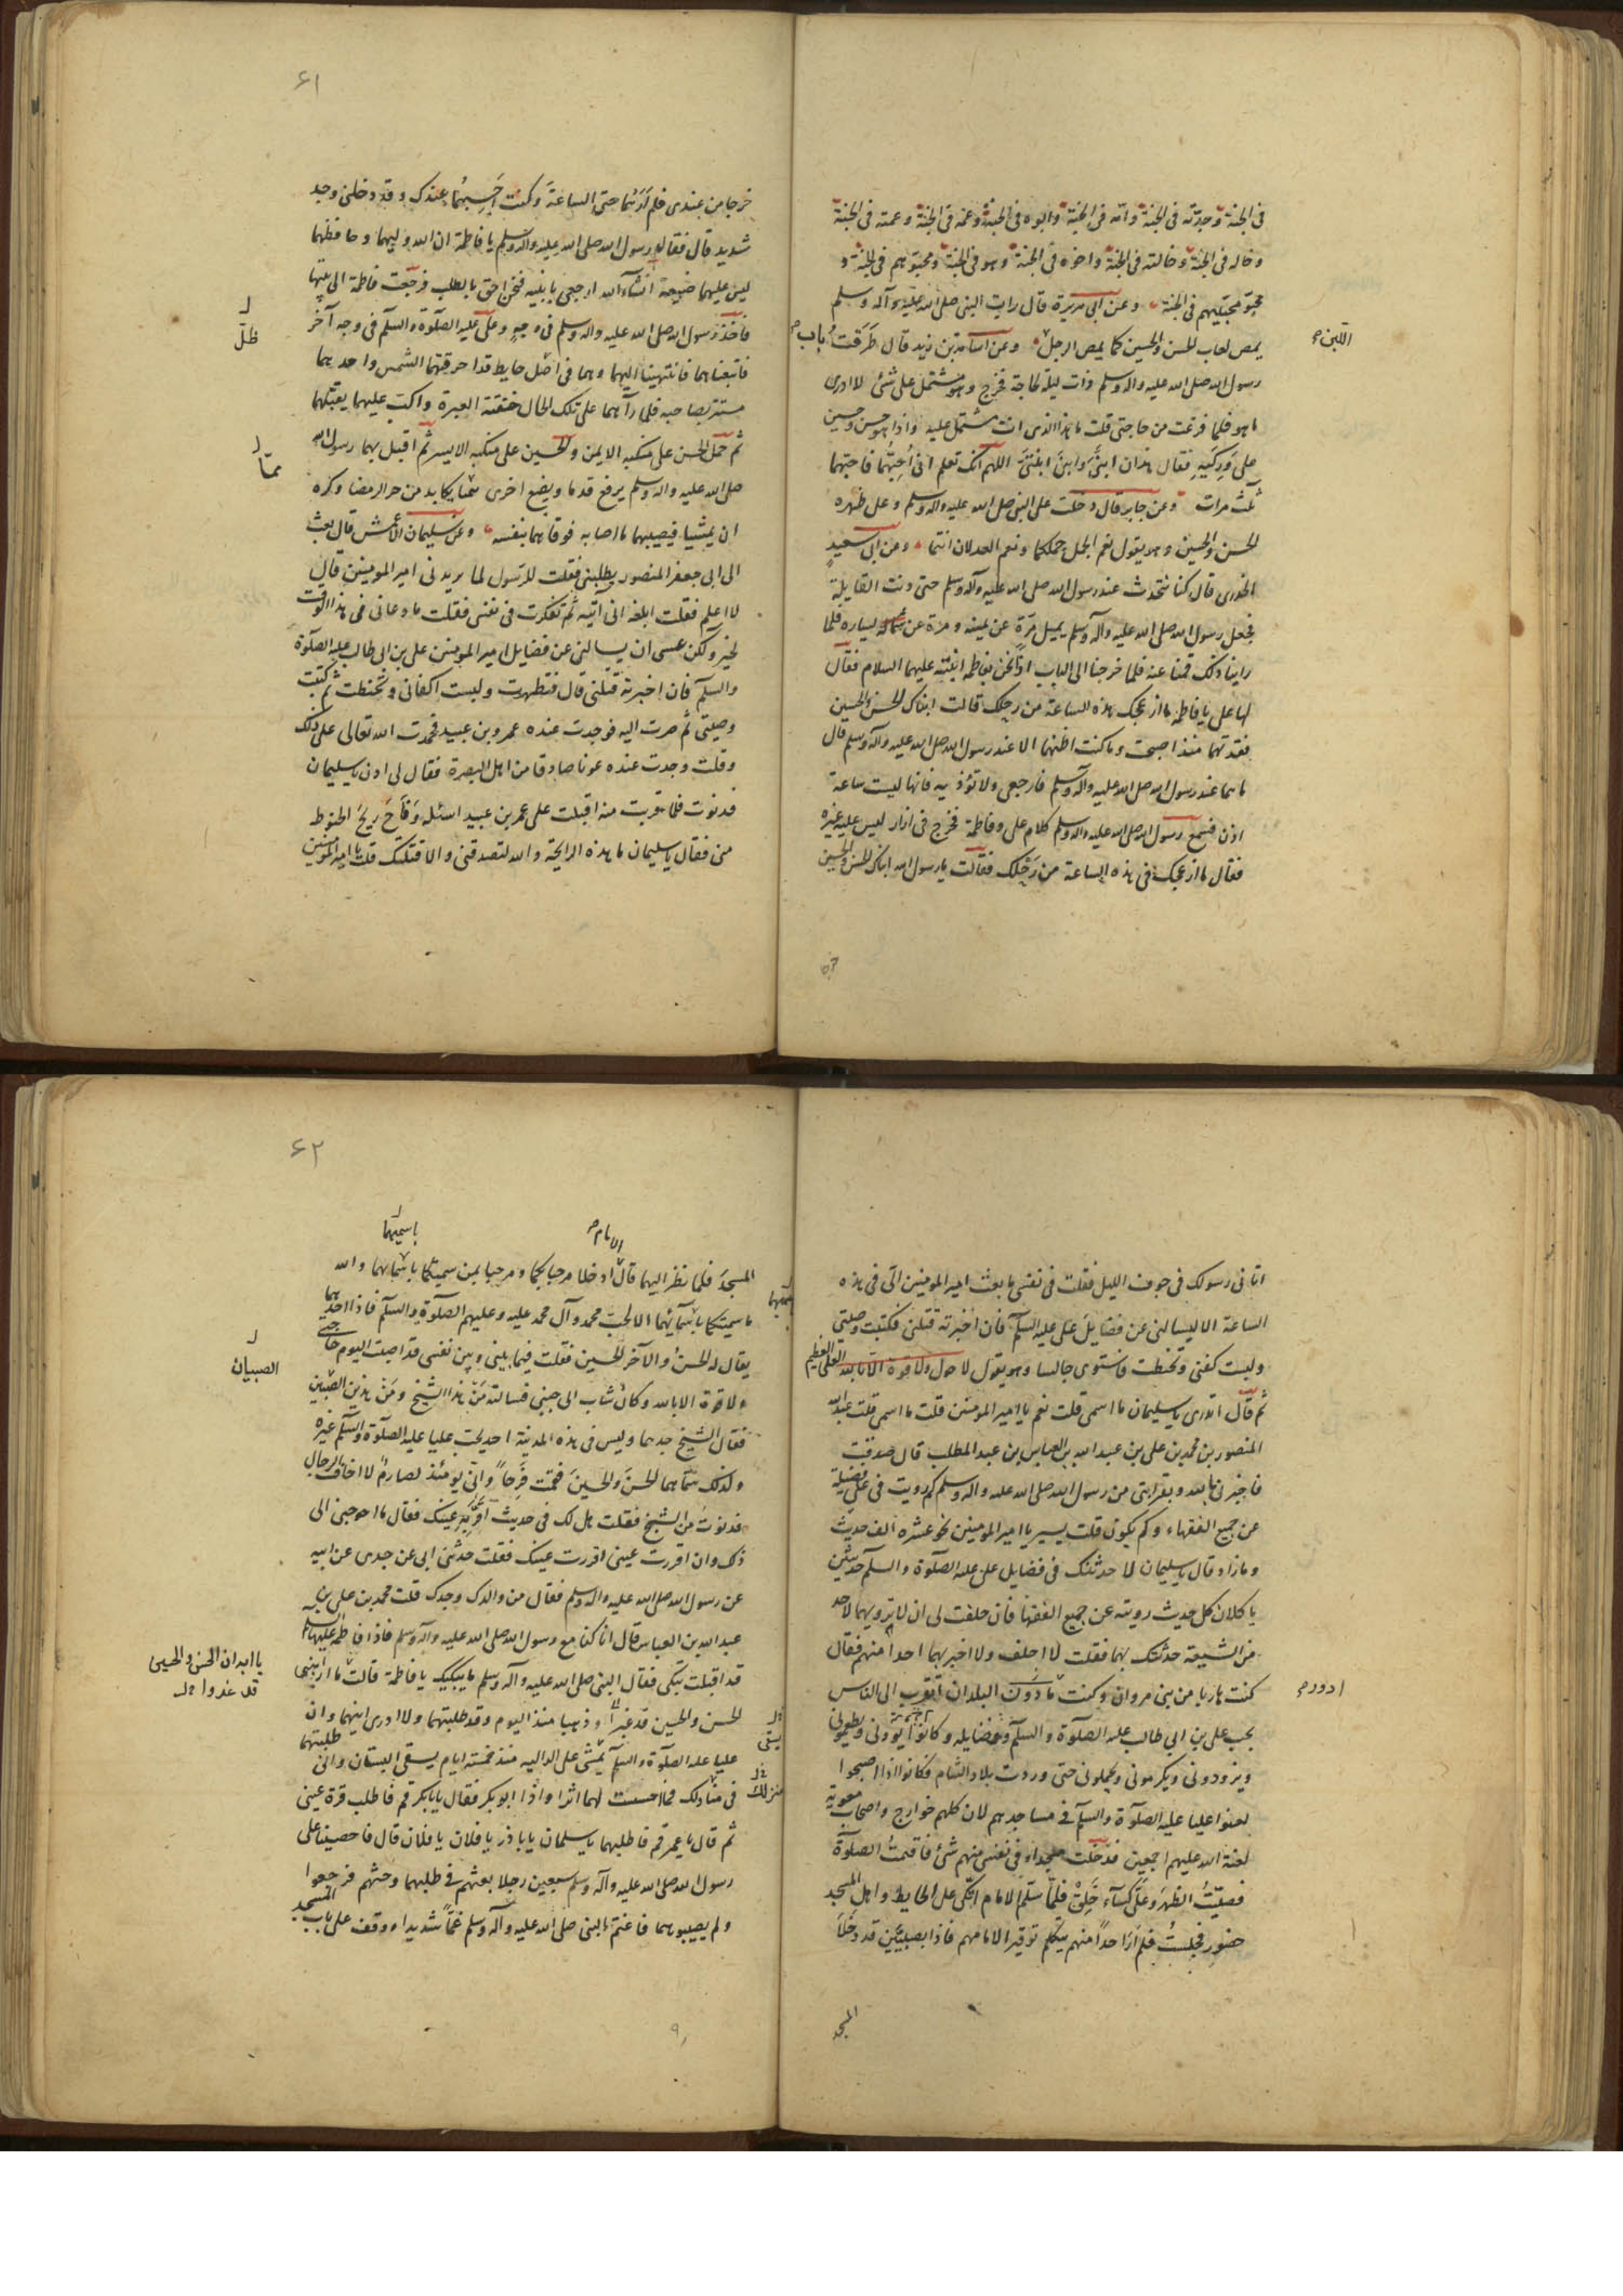 فى الجنة وجدّته فى الجنة وامّه فى الجنة وابوه فى الجنة وعمه فى الجنة وعمته فى الجنة
وخاله فى الجنة وخالته فى الجنة واخوه فى الجنة وهو فى الجنة ومحبّوهم فى الجنة و
محبّو محبّيهم فى الجنة وعن ابى هريرة قال رايت النبى صلى الله عليه وآله وسلم
يمص لعاب الحسن والحسين كما يمص الرجل وعن اسامة بن زيد قال طَرَقتُ باب
اللّبن
رسول الله صلى الله عليه واله وسلم ذات ليلة لحاجة فخرج وهو مشتمل على شئ لا ادرى
ما هو فلما فرغت من حاجتى قلت ما هذا الذى انت مشتمل عليه واذا هو حسن وحسين
على وَرِكَيهِ فقال هذان ابنَىَّ وابنَىْ ابنَتىَّ اللهم انّك تعلم انى اُحِبُّهُما فاحبّهما
ثلث مرات وعن جابر قال دخلت على النبى صلى الله عليه واله وسلم وعلى ظهره
الحسن والحسين وهو يقول نعم الجمل جملكما ونعم العدلان انتما وعن ابى سعيدٍ
الخدرى قال كنا نتحدث عند رسول الله صلى الله عليه وآله وسلم حتى دنت القايلة
فجعل رسول الله صلى الله عليه وآله وسلم يميل مرّة عن يمينه ومرة عن يساره فلما
راينا ذلك قمنا عنه فلما خرجنا الى الباب اذا نحن بفاطمة ابنته عليهما السلام فقال
لها على يا فاطمة ما ازعجك هذه الساعة من رحلك قالت ابناك الحسن والحسين
فقدتهما منذ اصبحت وما كنت اظنهما الا عند رسول الله صلى الله عليه وآله وسلم قال
ما هما عند رسول الله صلى الله عليه وآله وسلم فارجعى ولا تؤذيه فانها ليست ساعة
اذن فسمع رسول الله صلى الله عليه واله وسلم كلام على وفاطمة فخرج فى ازار ليس عليه غيره
فقال ما ازعجك فى هذه الساعة من رَحْلك فقالت يا رسول الله ابناك الحسن والحسين
۶۱
خرجا من عندى فلم اَرَهُما حتى الساعةَ وكنت اَحسِبُهُما عندك وقد دخلنى وجد
شديد قال فقال رسول الله صلى الله عليه واله وسلم يا فاطمة ان الله وليهما وحافظهما
ليس عليهما ضيعة انشآء الله ارجعى يا بنيه فنحن احق بالطلب فرجعت فاطمة الى بيتها
فاخذ رسول الله صلى الله عليه واله وسلم فى وجهٍ وعلى عليه الصلوة والسلم فى وجه آخر
فاتبعناهما فانتهينا اليهما وهما فى اصْل حايط قد احرقتهما الشمس واحدهما
ظلّ
مستتر بصاحبه فلما رآهما على تلك الحال خنقته العبرة واكبّ عليهما يقبّلهما
ثم حمل الحسن على منكبه الايمن والحسين على منكبه الايسر ثم اقبل بهما رسول الله
صلى الله عليه واله وسلم يرفع قدما ويضع اخرى ممّا يكابد من حر الرمضا وكره
ممّا
ان يمشيا فيصيبهما ما اصابه فوقاهما بنفسه وعن سليمان الاعمش قال بعث
الى ابى جعفر المنصور يطلبنى فقلت للرسول لما يريدنى امير المومنين قال
لا اعلم فقلت ابلغه انى آتيه ثم تفكرت فى نفسى فقلت ما دعانى فى هذا الوقت
لخير ولكن عسى ان يسالنى عن فضايل امير المومنين على بن ابى طالب عليه الصلوة
والسلم فان اخبرته قتلنى قال فتطهرت ولبست اكفانى وتحنطت ثم كتبت
وصيتى ثم صرت اليه فوجدت عنده عمرو بن عبيد فحمدت الله تعالى على ذلك
وقلت وجدت عنده عونا صادقا من اهل البصرة فقال لى ادن يا سليمان
فدنوت فلما قربت منه اقبلت على عمر بن عبيد اسئله وَفَاحَ ريحُ الحنوط
منى فقال يا سليمان ما هذه الرايحة والله لتصدقنى والا قتلتك قلت يا امير المومنين
اتانى رسولك فى جوف الليل فقلت فى نفسى ما بعث امير المومنين الىّ فى هذه
الساعة الا ليسالنى عن فضايل على عليه السلم فان اخبرته قتلنى فكتبت وصيتى
ولبست كفنى وتحنطت فاستوى جالسا وهو يقول لا حول ولا قوة الا بالله العلى العظيم
ثم قال اتدرى يا سليمان ما اسمى قلت نعم يا امير المومنين قلت ما اسمى قلت عبد الله
المنصور بن محمد بن على بن عبد الله بن العباس بن عبد المطلب قال صدقت
فاخبرنى بالله وبقرابتى من رسول الله صلى الله عليه واله وسلم كم رويت فى على فضيلة
عن جميع الفقهاء وكم يكون قلت يسير يا امير المومنين نحو عشره الف حديث
وما زاد قال يا سليمان لاحدثنك فى فضايل على عليه الصلوة والسلم حديثين
ياكلان كل حديث رويته عن جميع الفقها فان حلفت لى ان لا ترويهما لاحد
من الشيعة حدثتك بهما فقلت لا احلف ولا اخبر بهما احدا منهم فقال
كنت هاربا من بنى مروان وكنت ادور البلدان اتقرب الى الناس
ادور
بحب على بن ابى طالب عليه الصلوة والسلم وفضايله وكانوا يؤونى ويطعمونى
ويزودونى ويكرمونى ويحملونى حتى وردت بلاد الشام فكانوا اذا اصبحوا
لعنوا عليا عليه الصلوة والسلم فى مساجدهم لان كلهم خوارج واصحاب معوية
لعنة الله عليهم اجمعين فدخلت مسجدا وفى نفسى منهم شئ فاقيمت الصلوة
فصليّتُ الظهر وعلىّ كسآء خَلِقٌ فلمّا سلّم الامام اتّكى على الحايط واهل المسجد
حضور فجلستُ فلم اَرَ احداً منهم يتكلم توقيرا لامامهم فاذا بصبيّيَن قد دخلا
المسجد
۶۲
الامام
باسميهما
المسجدَ فلما نظر اليهما قال ادخلا مرحبا بكما ومرحبا بمن سميتكما باسمائهما والله
ما سميتكما باسمآئهما الا لحب محمد وآل محمد عليه وعليهم الصلوة والسلم فاذا احدهما
يقال له الحسن والآخر الحسين فقلت فيما بينى وبين نفسى قد اصبت اليوم حاجتى
ولا قوة الا بالله وكان شاب الى جنبى فسالته مَنْ هذا الشيخ ومَنْ هذين الصّبيّين
الصبيان
فقال الشيخ جدهما وليس فى هذه المدينة احد يحب عليا عليه الصلوة والسلم غيره
ولذلك سمّاهما الحسنَ والحسينَ فقمت فرحاً وانّى يومئذ لصارمٌ لا اخاف الرجال
فدنوتُ من الشيخ فقلت هل لك فى حديث اُقرُّ به عينك فقال ما احوجنى الى
ذلك وان اقررت عينى اقررت عينك فقلت حدثنى ابى عن جدى عن ابيه
عن رسول الله صلى الله عليه واله وسلم فقال من والدك وجدك قلت محمد بن على بن
عبد الله بن العباس قال انا كنا مع رسول الله صلى الله عليه وآله وسلم فاذا فاطمة عليها السلم
قد اقبلت تبكى فقال النبى صلى الله عليه وآله وسلم ما يبكيك يا فاطمة قالت
يا ابه ان الحسن والحسين
قد غدوا
الحسن والحسين قد غبرا وذهبا منذ اليوم وقد طلبتهما ولا ادرى اينهما وان
عليا عليه الصلوة والسلم يمشى على الدالية منذ خمسة ايام يسقى البستان وانى طلبتهما
يسقى
فى منازلك فما حسست لهما اثرا واذا ابو بكر فقال يا بابكر قم فاطلب قرة عينى
منزلك
ثم قال يا عمر قم فاطلبهما يا سلمان يا باذر يا فلان يا فلان قال فاحصينا على
رسول الله صلى الله عليه وآله وسلم سبعين رجلا بعثهم فى طلبهما وحثهم فرجعوا
ولم يصيبوهما فاغتم النبى صلى الله عليه وآله وسلم غمّاً شديدا ووقف على باب المسجد